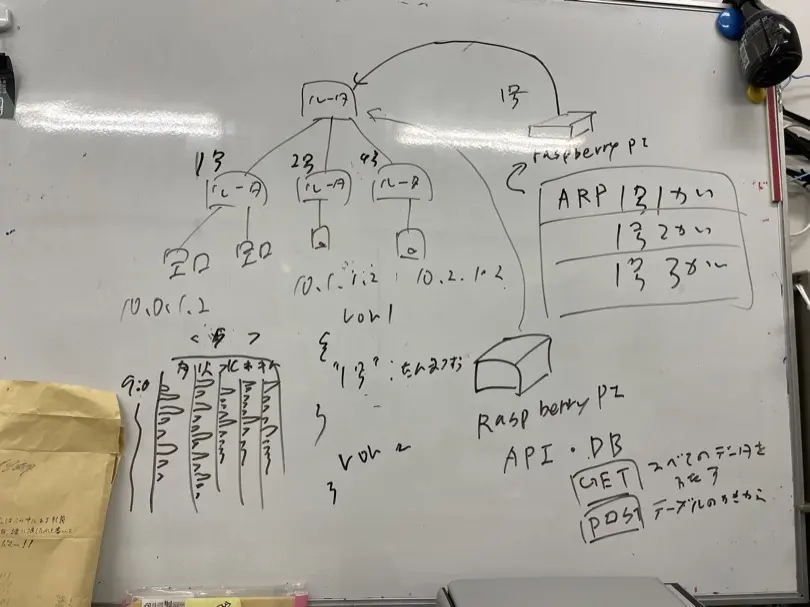 ルータ
1号
raspberry pi
1号
2号
4号
ルータ
ルータ
ルータ
ARP 1号1かい
1号2かい
1号3かい
10.0.1.2
10.1.1.2
10.2.1.2
ver 1
{
"1号":
}
<
>
月
火
水
木
9:0
Raspberry PI
API・DB
GET
すべてのデータを
POST
テーブルの